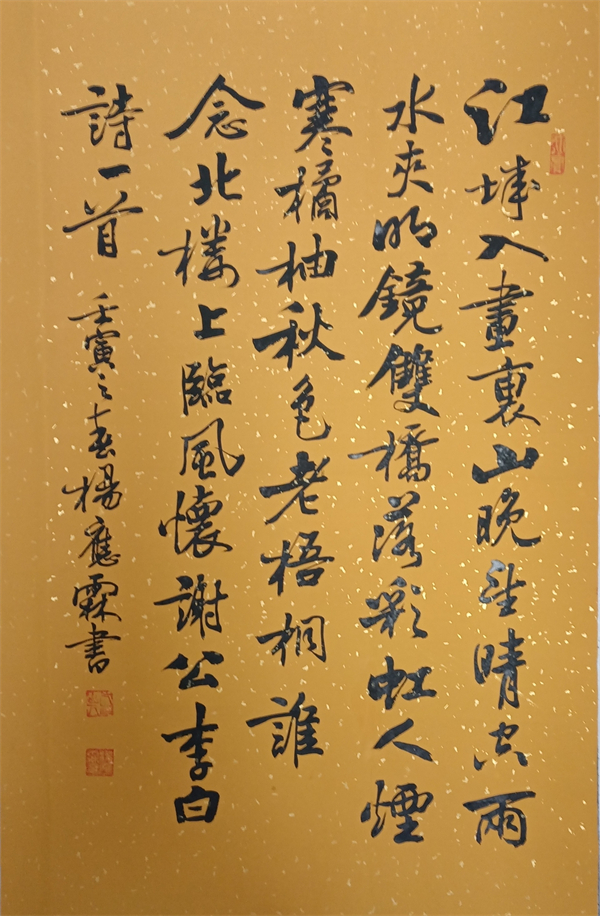 江城入畫裏山晚望晴空兩
水夾明鏡雙橋落彩虹人煙
寒橘柚秋色老梧桐誰
念北楼上臨風懷謝公李白
詩一首
壬寅之春楊應霖書